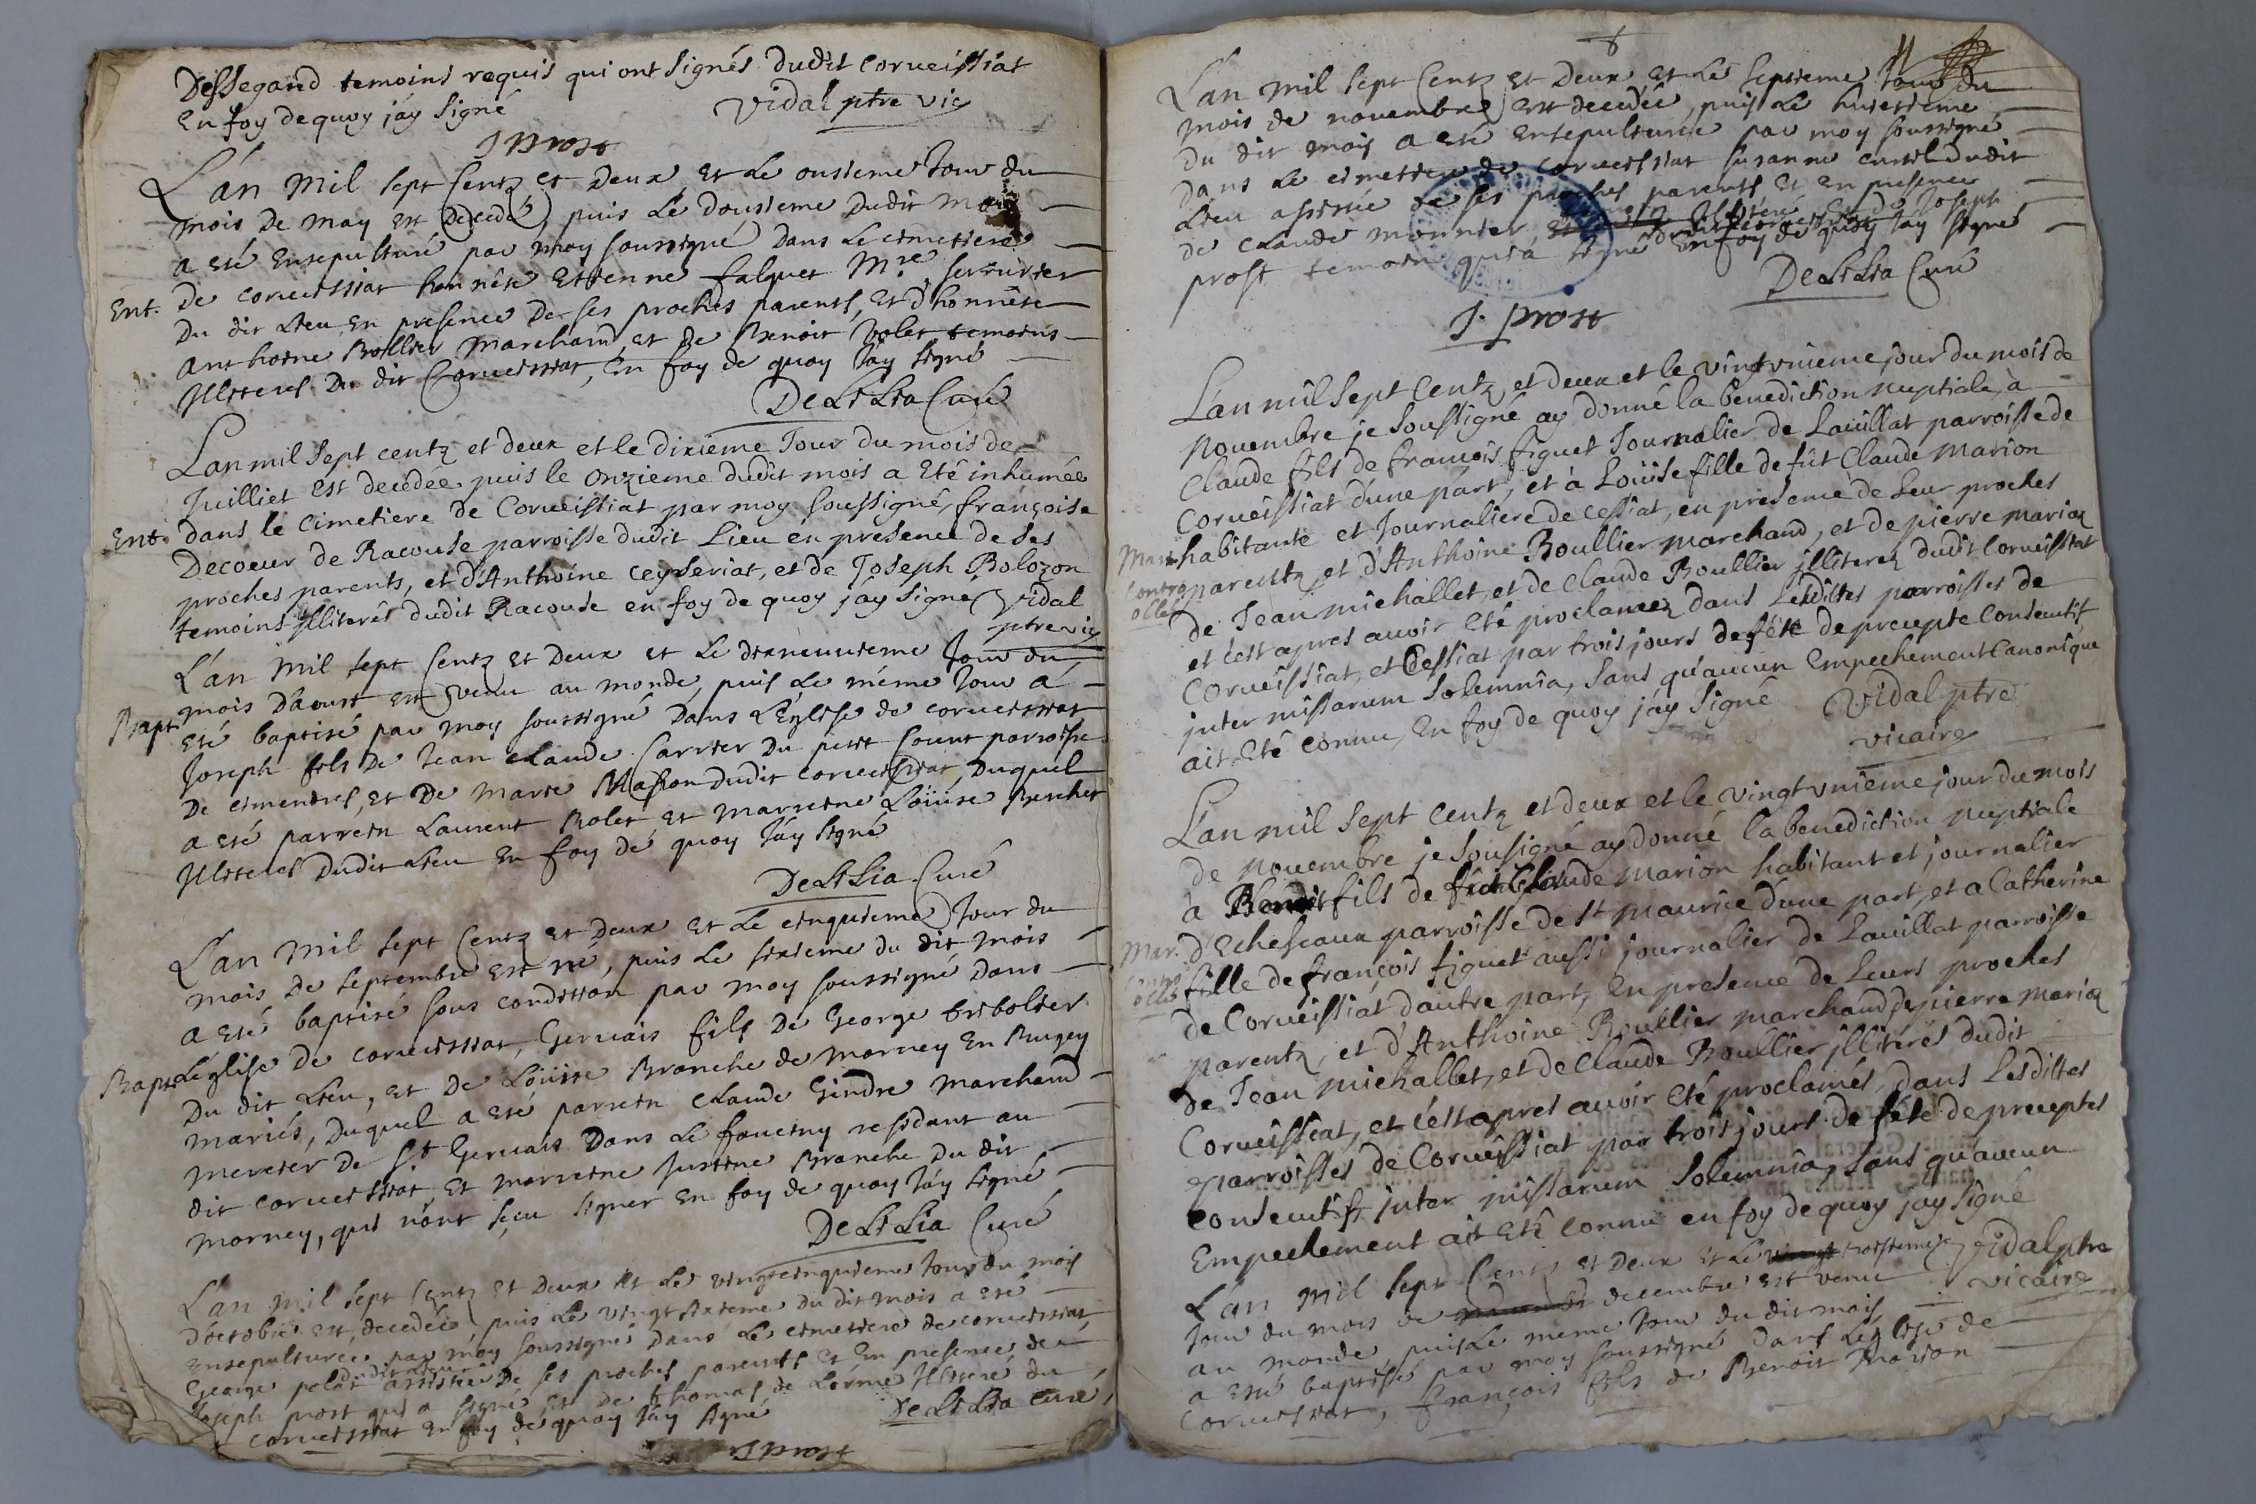 Dessegand temoins requis qui ont signés dudit corveissiat
en foy de quoy j'ay signé Vidal ptre vic
J prost
L'an mil sept centz et deux et le onsieme jour du
mois de may est decedé, puis le dousieme dudit mois
a eté ensepulturé par moy soussigné dans le cimetiere
Ent. de corveissiat honnête Etienne falquet Mre serrurier
du dit lieu, en presence de ses proches parents, et d'honnête
Anthoine Bollier marchand, et de Benoit Bolet temoins
illiterés du dit Corveissiat, en foy de quoy j'ay signé
DeLiLia Curé
L'an mil sept centz et deux et le dixieme jour du mois de
Juilliet est decedée puis le onzieme dudit mois a eté inhumée
Ent. dans le cimetiere de Corveissiat par moy soussigné, françoise
Decoeur de Racouse parroisse dudit lieu en presence de ses
proches parents, et d'Anthoine ceyseriat, et de Joseph Bolozon
temoins illiterés dudit Racouse en foy de quoy j'ay signé Vidal
ptre vic
L'an mil sept centz et deux et le dixneuvieme jour du
mois d'aoust est venu au monde, puis le même jour a
Bapt. eté baptisé par moy soussigné dans l'église de corveissiat
Joseph fils de Jean claude Carrier du petit Court parroisse
de cimendres, et de marie Mason dudit corveissiat, duquel
a eté parrein Laurent Bolet et marreine Loüise Berchet
illiterés dudit lieu en foy de quoy j'ay signé
DeLiLia Curé
L'an mil sept centz et deux et le cinquieme jour du
mois de septembre est né, puis le sixieme du dit mois
a eté baptisé sous condition par moy soussigné dans
Bapt. l'église de corveissiat, Gervais fils de George tribolier
du dit lieu, et de Loüise Branche de morney en Bugey
mariés, duquel a eté parrein claude Gindre marchand
mercier de St Gervais dans le foucigny residant au
dit corveissiat, et marreine Justine Branche du dit
morney, qui n'ont sçeu signer en foy de quoy j'ay signé
DeLiLia Curé
L'an mil sept centz et deux et le vingtcinquieme jour du mois
d'octobre est decedée puis le vingt sixieme du dit mois a eté
ensepulturée par moy soussigné dans le cimetiere de corveissiat
George pelat assistée de ses proches parents et en presence de
Joseph prost qui a signé et de thomas de Lorme illiteré du
corveissiat en foy de quoy j'ay signé DeLiLia Curé
J prost
L'an mil sept centz et deux et le septieme jour du
mois de novembre est decedée, puis le huictieme
du dit mois a eté ensepulturée par moy soussigné
dans le cimetiere de corveissiat susanne curtil dudit
lieu assistée de ses proches parents et en presence
de claude monnier, dudit corveissiat et de Joseph
prost temoin qui a signé en foy de quoy j'ay signé
DeLiLia Curé
J. prost
L'an mil sept centz et deux et le vingt vnieme jour du mois de
novembre je soussigné ay donné la benediction nuptiale, a
Claude fils de francois figuet Journalier de Lauillat parroisse de
Corveissiat d'une part, et à Loüise fille de fût Claude Marion
habitante et Journaliere de cessiat, en presence de leur proches
Mar. parentz, et d'Anthoine Boullier marchand, et de pierre marion
Contro de Jean michallet, et de Claude Boullier jlliterez dudit Corveissiat
ollé et c'est apres auoir eté proclamez dans lesdittes parroisses de
Corveissiat, et Cessiat par trois jours de fête de precepte consecutif
inter missarum solemnia, sans qu'aucun empechement Canonique
ait eté connu, en foy de quoy j'ay signé Vidal ptre
vicaire
L'an mil sept centz et deux et le vingt vnieme jour du mois
de novembre je sousigné ay donné la benediction nuptiale
à Benoit fils de fût Claude marion habitant et journalier
Mar. d'Echeseaux parroisse de St maurice d'une part, et a Catherine
Contro fille de françois figuet aussi journalier de Lauillat parroisse
ollé de Corveissiat d'autre part, en presence de leurs proches
parentz, et d'Anthoine Boullier marchand, de pierre marion
de Jean michallet, et de Claude Boullier jlliterés dudit
Corveissiat, et c'est apres auoir eté proclamés, dans lesdittes
parroisses de Corveissiat par trois jours de fête de preceptes
consecutifs inter missarum solemnia, sans qu'aucun
Empechement ait eté connu en foy de quoy j'ay signé
Vidal ptre
vicaire
L'an mil sept centz et deux et le troisieme
jour du mois de decembre est venu
au monde, puis le même jour du dit mois
a eté baptissé par moy soussigné dans l'église de
corveissiat, françois fils de Benoit marion